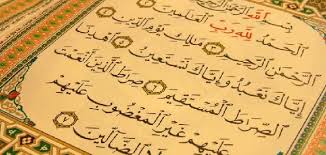 بِسْمِ اللَّهِ الرَّحْمَٰنِ الرَّحِيمِ
الْحَمْدُ لِلَّهِ رَبِّ الْعَٰلَمِينَ
الرَّحْمَٰنِ الرَّحِيمِ مَٰلِكِ يَوْمِ الدِّينِ
إِيَّاكَ نَعْبُدُ وَإِيَّاكَ نَسْتَعِينُ اهْدِنَا
الصِّرَٰطَ الْمُسْتَقِيمَ صِرَٰطَ الَّذِينَ أَنْعَمْتَ
عَلَيْهِمْ غَيْرِ الْمَغْضُوبِ عَلَيْهِمْ
وَلَا الضَّالِّينَ ٧